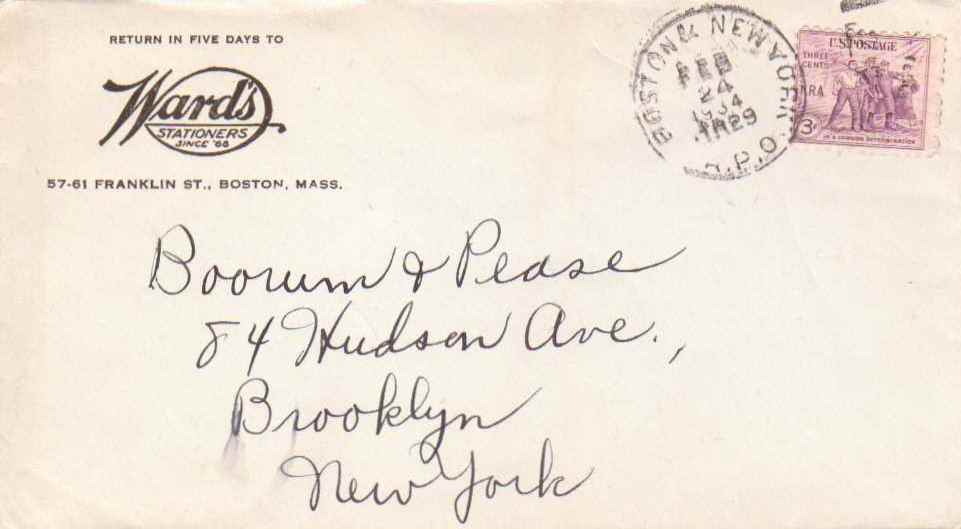 RETURN IN FIVE DAYS TO
Ward's
STATIONERS
SINCE '68
57-61 FRANKLIN ST., BOSTON, MASS.
BOSTON & NEW YORK
FEB
24
1934
TR29
R.P.O.
U.S. POSTAGE
THREE
CENTS
NRA
3¢
IN A COMMON DETERMINATION
Boorum & Pease
84 Hudson Ave.,
Brooklyn
New York